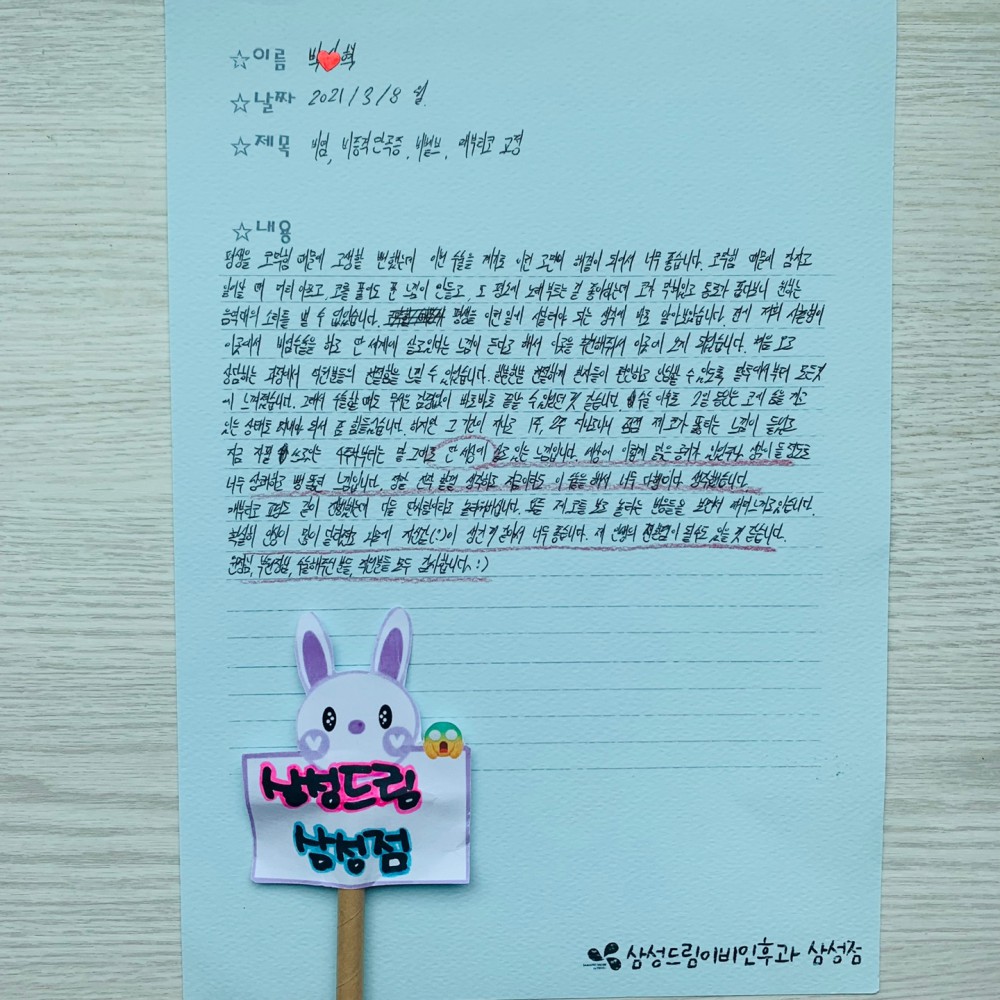 ☆이름 박 혁
☆날짜 2021/3/8 월.
☆제목 비염, 비중격 만곡증, 비밸브, 매부리코 교정
☆내용
평생을 코막힘 때문에 고생할 뻔했는데 이번 수술을 계기로 이런 고민이 해결이 되어서 너무 좋습니다. 코막힘 때문에 잠자고
일어날 때 머리 아프고, 코를 풀어도 푼 느낌이 안들고, 또 평소에 노래 부르는 걸 좋아하는데 코가 막혀있고 통로가 좁다보니 원하는
음역대의 소리를 낼 수 없었습니다. 평생을 이런 일에 시달려야 되는 생각에 바로 알아보았습니다. 전에 저희 사촌형이
이곳에서 비염수술을 하고 딴 세계에 살고있다는 느낌이 든다고 해서 이곳을 추천해줘서 이곳에 오게 되었습니다. 처음 오고
상담하는 과정에서 직원분들의 친절함을 느낄 수 있었습니다. 한분한분 친절하게 환자들이 편안하고 안심할 수 있도록 말투에서부터 모든것
에 느껴졌습니다. 그래서 수술할 때도 무서운 감정없이 바로바로 끝날 수 있었던 것 같습니다. 수술 이후로 2일 동안은 코에 솜을 끼고
있는 상태로 지내야 되서 좀 힘들었습니다. 하지만 그 기간이 지나고 1주, 2주 지나다보니 점점 제 코가 뚫리는 느낌이 들었고
지금 자필 쓰고있는 4주차부터는 말 그대로 딴 세상에 살고 있는 느낌입니다. 세상에 이렇게 맑은 공기가 있었구나, 생각이 들 정도로
너무 상쾌하고 뻥 뚫린 느낌입니다. 정말 진작 할걸 생각하고 지금이라도 이 수술을 해서 너무 다행이다 생각했습니다.
매부리코 교정도 같이 진행했는데 다들 만족했냐고 물어봅니다. 모든 제 코를 보고 놀라는 분들을 보면서 재미느끼고있습니다.
확실히 인상이 많이 달라졌고 나름에 자신감(:)이 생긴 것 같아서 너무 좋습니다. 제 인생의 전환점이 될수도 있을 것 같습니다.
원장님, 부원장님, 수술해주신 분들, 직원분들 모두 감사합니다. :)
삼성드림
삼성점
삼성드림이비인후과 삼성점